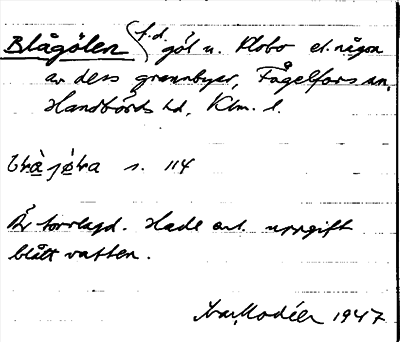 Blågölen (f.d. göl u. Klobo el. någon
av dess grannbyar, Fågelfors sn,
Handbörds hd, Klm. l.
s. 114
Är torrlagd. Hade enl. uppgift
blått vatten.
Ivar Modéer 1947